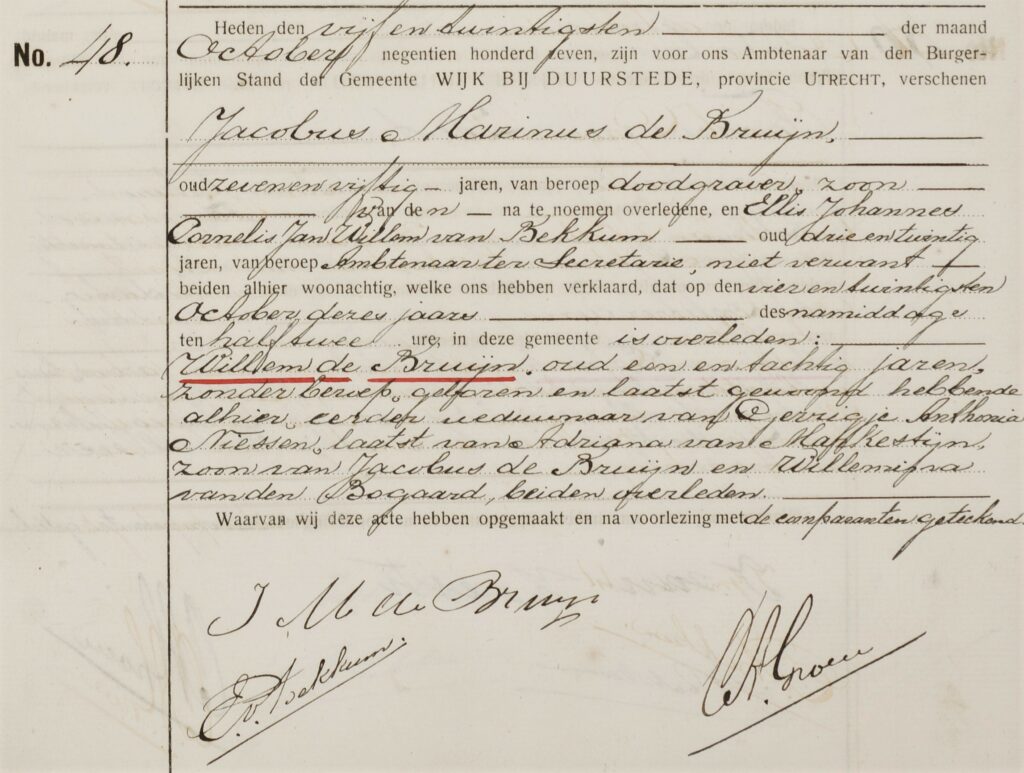 Heden den vijf en twintigsten der maand
No. 48. October negentien honderd zeven, zijn voor ons Ambtenaar van den Burger-
lijken Stand der Gemeente WIJK BIJ DUURSTEDE, provincie UTRECHT, verschenen
Jacobus Marinus de Bruijn,
oud zeven en vijftig jaren, van beroep doodgraver, zoon
van den na te noemen overledene, en Ellis Johannes
Cornelis Jan Willem van Bekkum oud drie en twintig
jaren, van beroep Ambtenaar ter Secretarie, niet verwant
beiden alhier woonachtig, welke ons hebben verklaard, dat op den vier en twintigsten
October dezes jaars des namiddags
ten half twee ure, in deze gemeente is overleden:
Willem de Bruijn, oud een en tachtig jaren,
zonder beroep, geboren en laatst gewoond hebbende
alhier, eerder weduwnaar van Gerrigje Anthonia
Niessen, laatst van Adriana van Mankestijn,
zoon van Jacobus de Bruijn en Willemijna
van den Bogaard, beiden overleden.
Waarvan wij deze acte hebben opgemaakt en na voorlezing met de comparanten geteekend.
J M de Bruijn
EvBekkum.